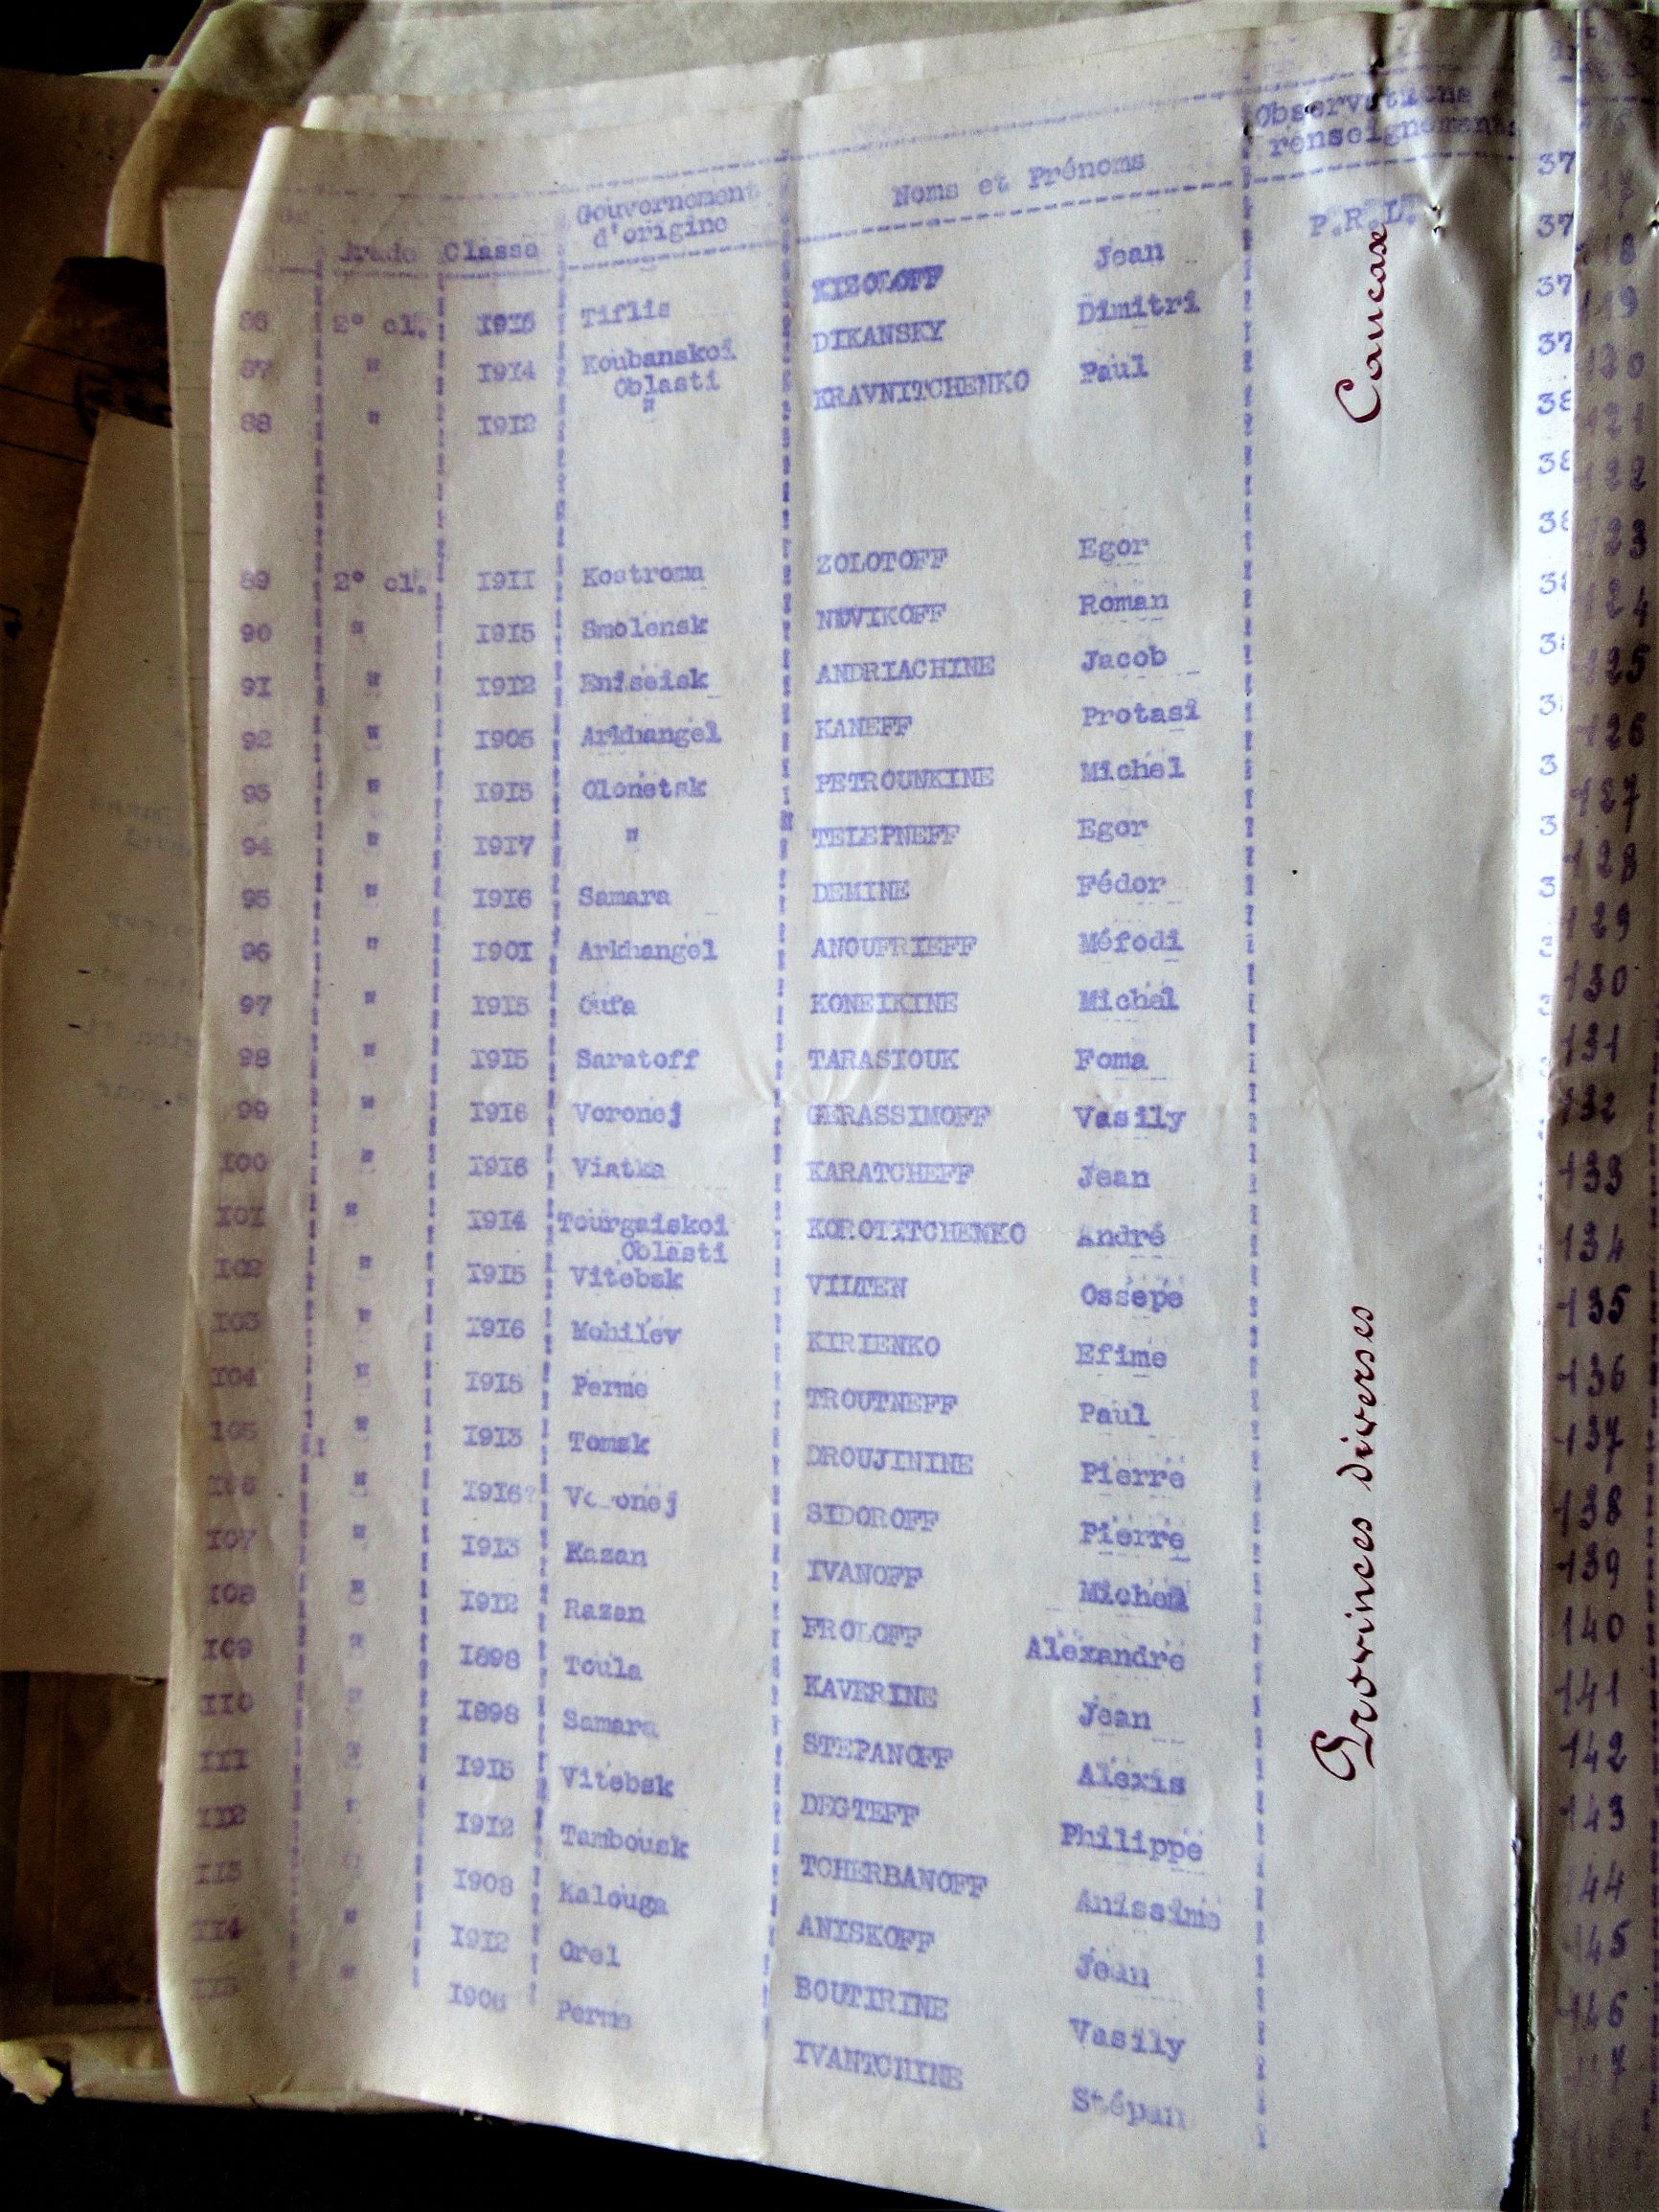 Observations
renseignements
Gouvernement
d'origine
Noms et Prénoms
Grade Classe
P.R.L.
86 2° cl. 1916 Tiflis KIZOLOFF Jean
87 " 1914 Koubanskoi DIKANSKY Dimitri
Oblasti
88 " 1912 " KRAVNITCHENKO Paul
Caucase
89 2° cl. 1911 Kostroma ZOLOTOFF Egor
90 " 1915 Smolensk NOVIKOFF Roman
91 " 1912 Eniseisk ANDRIACHINE Jacob
92 " 1905 Arkhangel KANEFF Protasi
93 " 1915 Olonetsk PETROUNKINE Michel
94 " 1917 " TELEPNEFF Egor
95 " 1916 Samara DEMINE Fédor
96 " 1901 Arkhangel ANOUFRIEFF Méfodi
97 " 1915 Oufa KONEIKINE Michel
98 " 1915 Saratoff TARASIOUK Foma
99 " 1916 Voronej GERASSIMOFF Vasily
100 " 1916 Viatka KARATCHEFF Jean
101 " 1914 Tourgaiskoi KOROTITCHENKO André
Oblasti
102 " 1915 Vitebsk VILTEN Ossepe
103 " 1916 Mohilev KIRIENKO Efime
104 " 1915 Perme TROUTNEFF Paul
105 " 1913 Tomsk DROUJININE Pierre
106 " 1916? Voronej SIDOROFF Pierre
107 " 1913 Kazan IVANOFF Michel
108 " 1912 Razan FROLOFF Alexandre
109 " 1898 Toula KAVERINE Jean
110 " 1898 Samara STEPANOFF Alexis
111 " 1915 Vitebsk DEGTEFF Philippe
112 " 1912 Tambousk TCHERBANOFF Anissime
113 " 1908 Kalouga ANISKOFF Jean
114 " 1912 Orel BOUTIRINE Vasily
115 " 1906 Perme IVANTCHINE Stépan
Provinces diverses
37
37
37
37
38
38
38
119
120
121
122
123
124
125
126
127
128
129
130
131
132
133
134
135
136
137
138
139
140
141
142
143
144
145
146
147